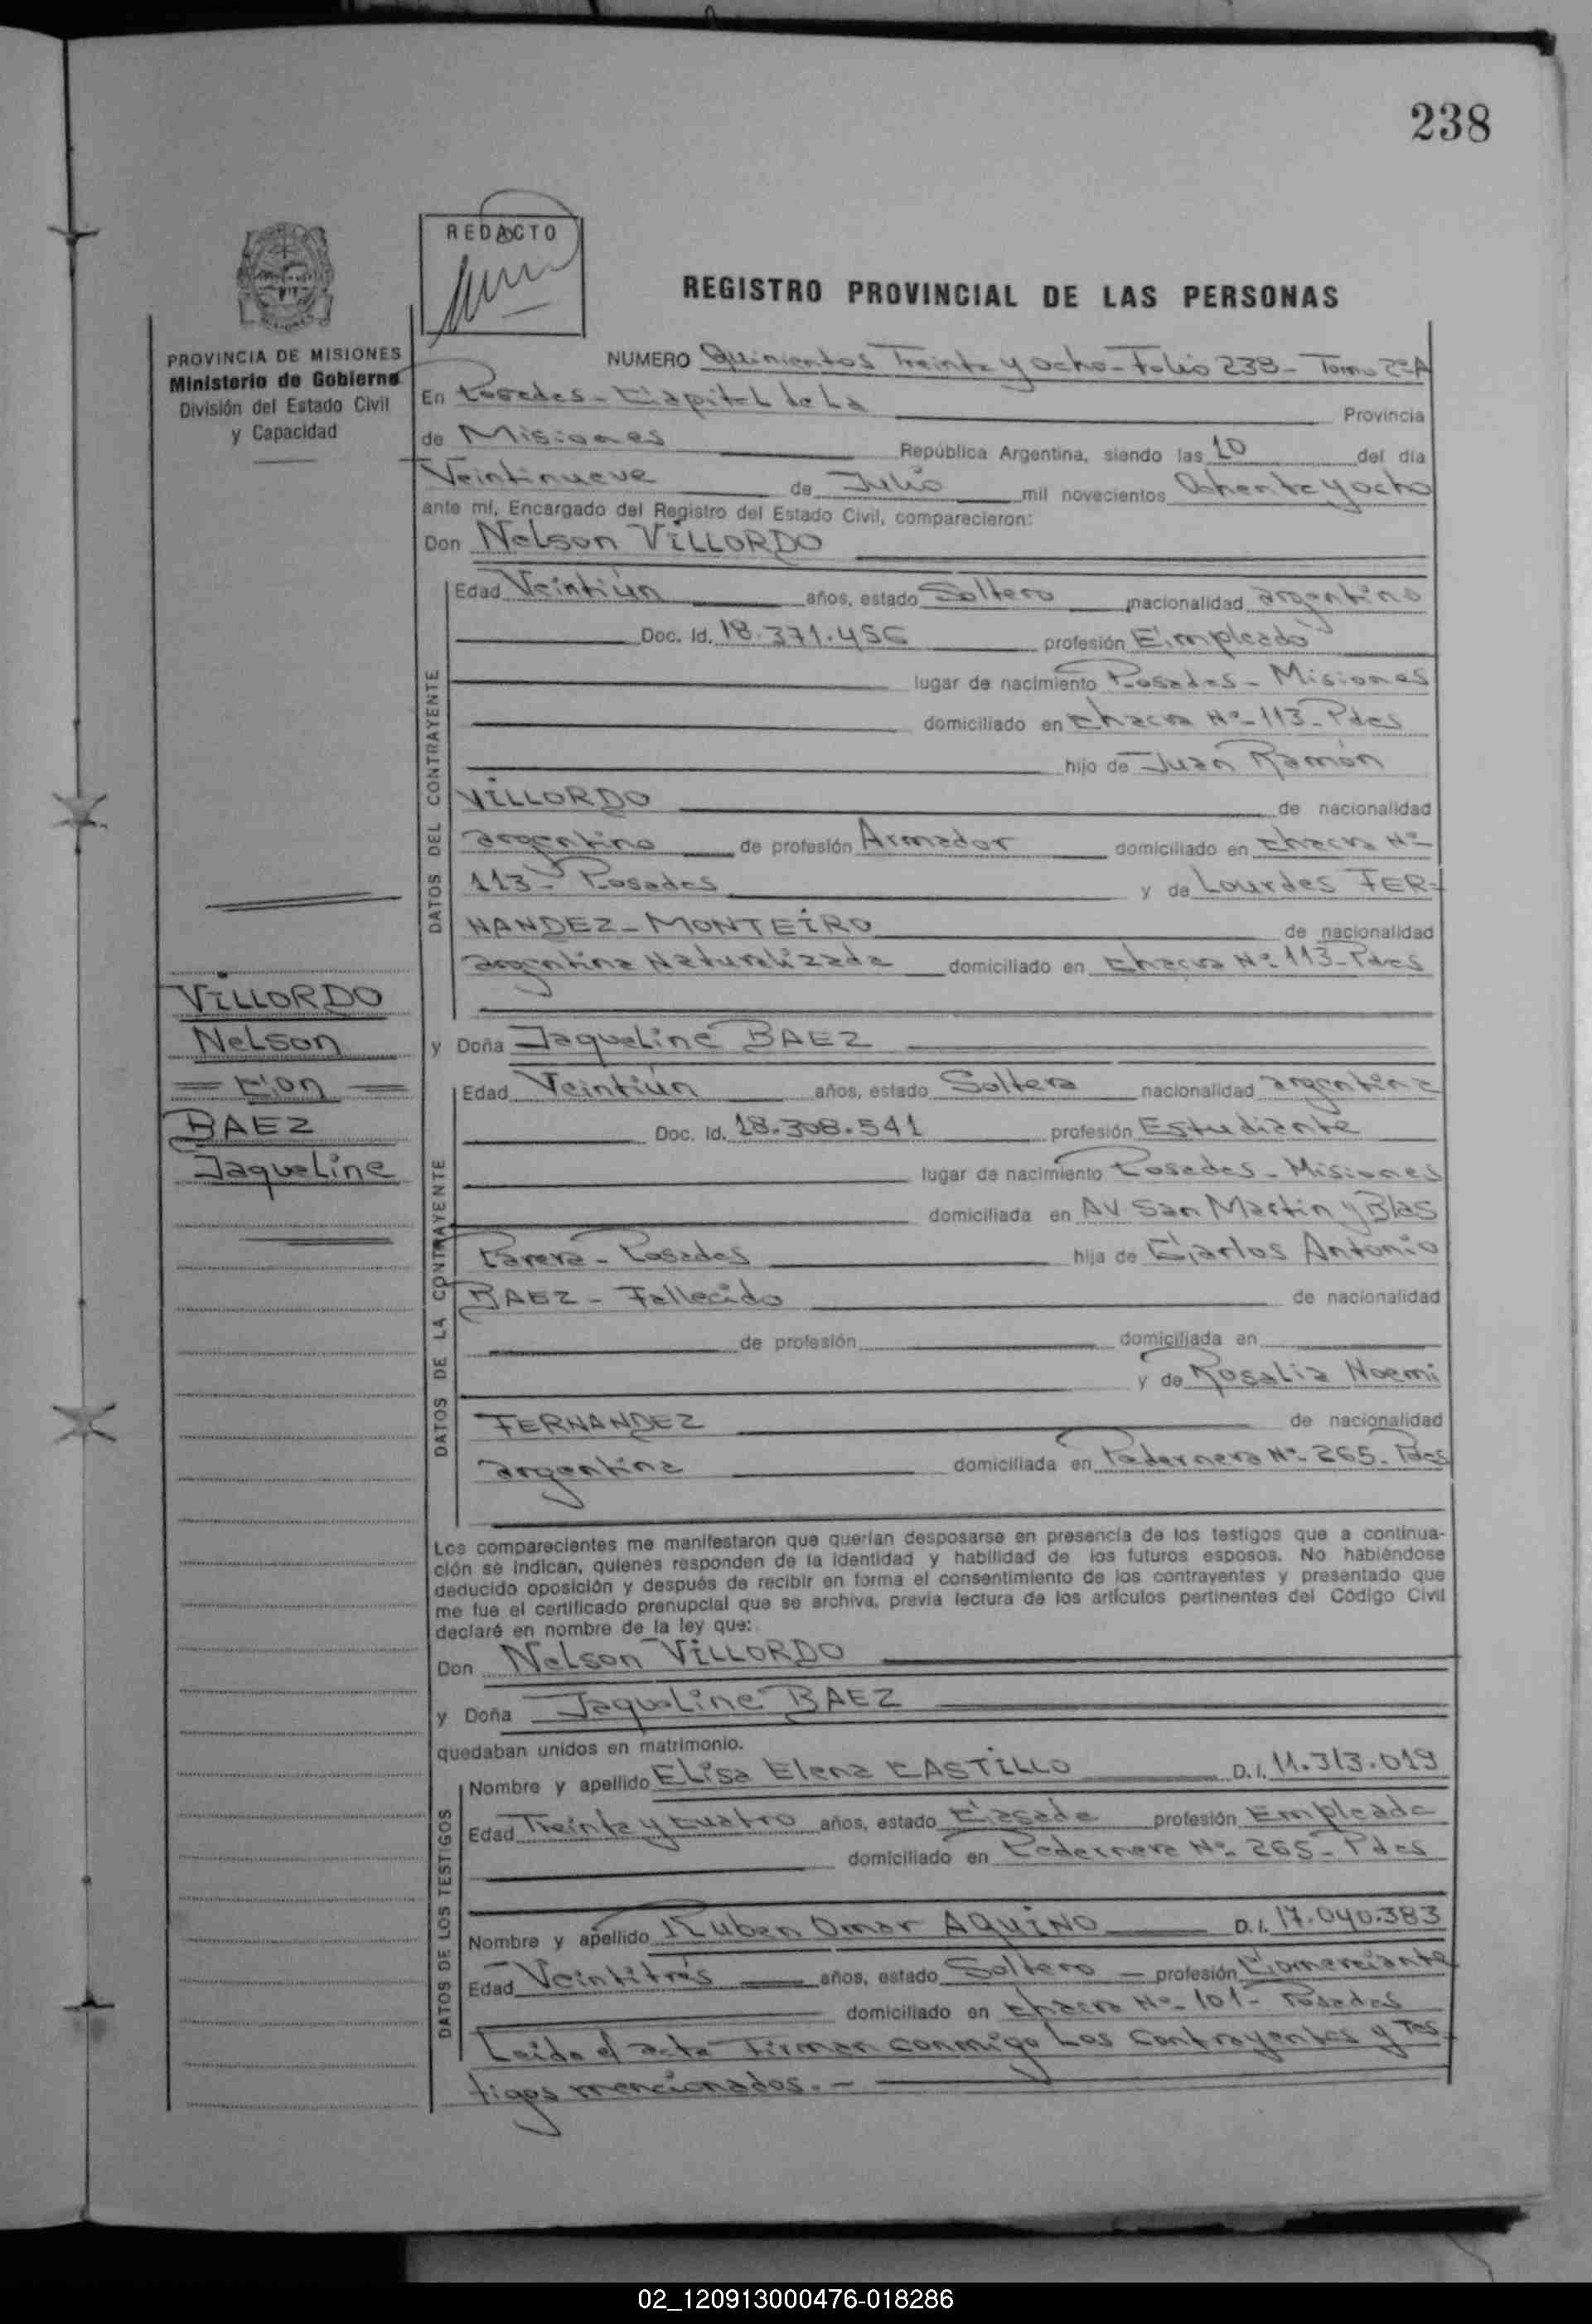 238
REDACTO
REGISTRO PROVINCIAL DE LAS PERSONAS
PROVINCIA DE MISIONES
Ministerio de Gobierno
División del Estado Civil
y Capacidad
NUMERO Quinientos Treinta y ocho - Folio 238 - Tomo 2º A
En Posadas - Capital de La Provincia
de Misiones República Argentina, siendo las 10 del día
Veintinueve de Julio mil novecientos Ochenta y ocho
ante mí, Encargado del Registro del Estado Civil, comparecieron:
Don Nelson VILLORDO
DATOS DEL CONTRAYENTE
Edad Veintiún años, estado Soltero nacionalidad argentino
Doc. Id. 18.371.456 profesión Empleado
lugar de nacimiento Posadas - Misiones
domiciliado en Chacra Nº - 113 - Pdas
hijo de Juan Ramón
VILLORDO de nacionalidad
argentino de profesión Armador domiciliado en Chacra Nº -
113 - Posadas y de Lourdes FER=
NANDEZ - MONTEIRO de nacionalidad
argentina Naturalizada domiciliado en Chacra Nº 113 - Pdas
VILLORDO
Nelson
= Con =
BAEZ
Jaqueline
y Doña Jaqueline BAEZ
DATOS DE LA CONTRAYENTE
Edad Veintiún años, estado Soltera nacionalidad argentina
Doc. Id. 18.308.541 profesión Estudiante
lugar de nacimiento Posadas - Misiones
domiciliada en AV. San Martin y Blas
Parera - Posadas hija de Carlos Antonio
BAEZ - Fallecido de nacionalidad
de profesión domiciliada en
y de Rosalia Noemi
FERNANDEZ de nacionalidad
argentina domiciliada en Pedernera Nº - 265 - Pdas
Los comparecientes me manifestaron que querían desposarse en presencia de los testigos que a continua-
ción se indican, quienes responden de la identidad y habilidad de los futuros esposos. No habiéndose
deducido oposición y después de recibir en forma el consentimiento de los contrayentes y presentado que
me fue el certificado prenupcial que se archiva, previa lectura de los artículos pertinentes del Código Civil
declaré en nombre de la ley que:
Don Nelson VILLORDO
y Doña Jaqueline BAEZ
quedaban unidos en matrimonio.
DATOS DE LOS TESTIGOS
Nombre y apellido Elisa Elena CASTILLO D.I. 11.313.019
Edad Treinta y cuatro años, estado Casada profesión Empleada
domiciliado en Pedernera Nº - 265 - Pdas
Nombre y apellido Ruben Omar AQUINO D.I. 17.040.383
Edad Veintitrés años, estado Soltero - profesión Comerciante
domiciliado en Chacra Nº - 101 - Posadas
Leida el acta Firman conmigo Los Contrayentes y Tes-
tigos mencionados. -
02_120913000476-018286